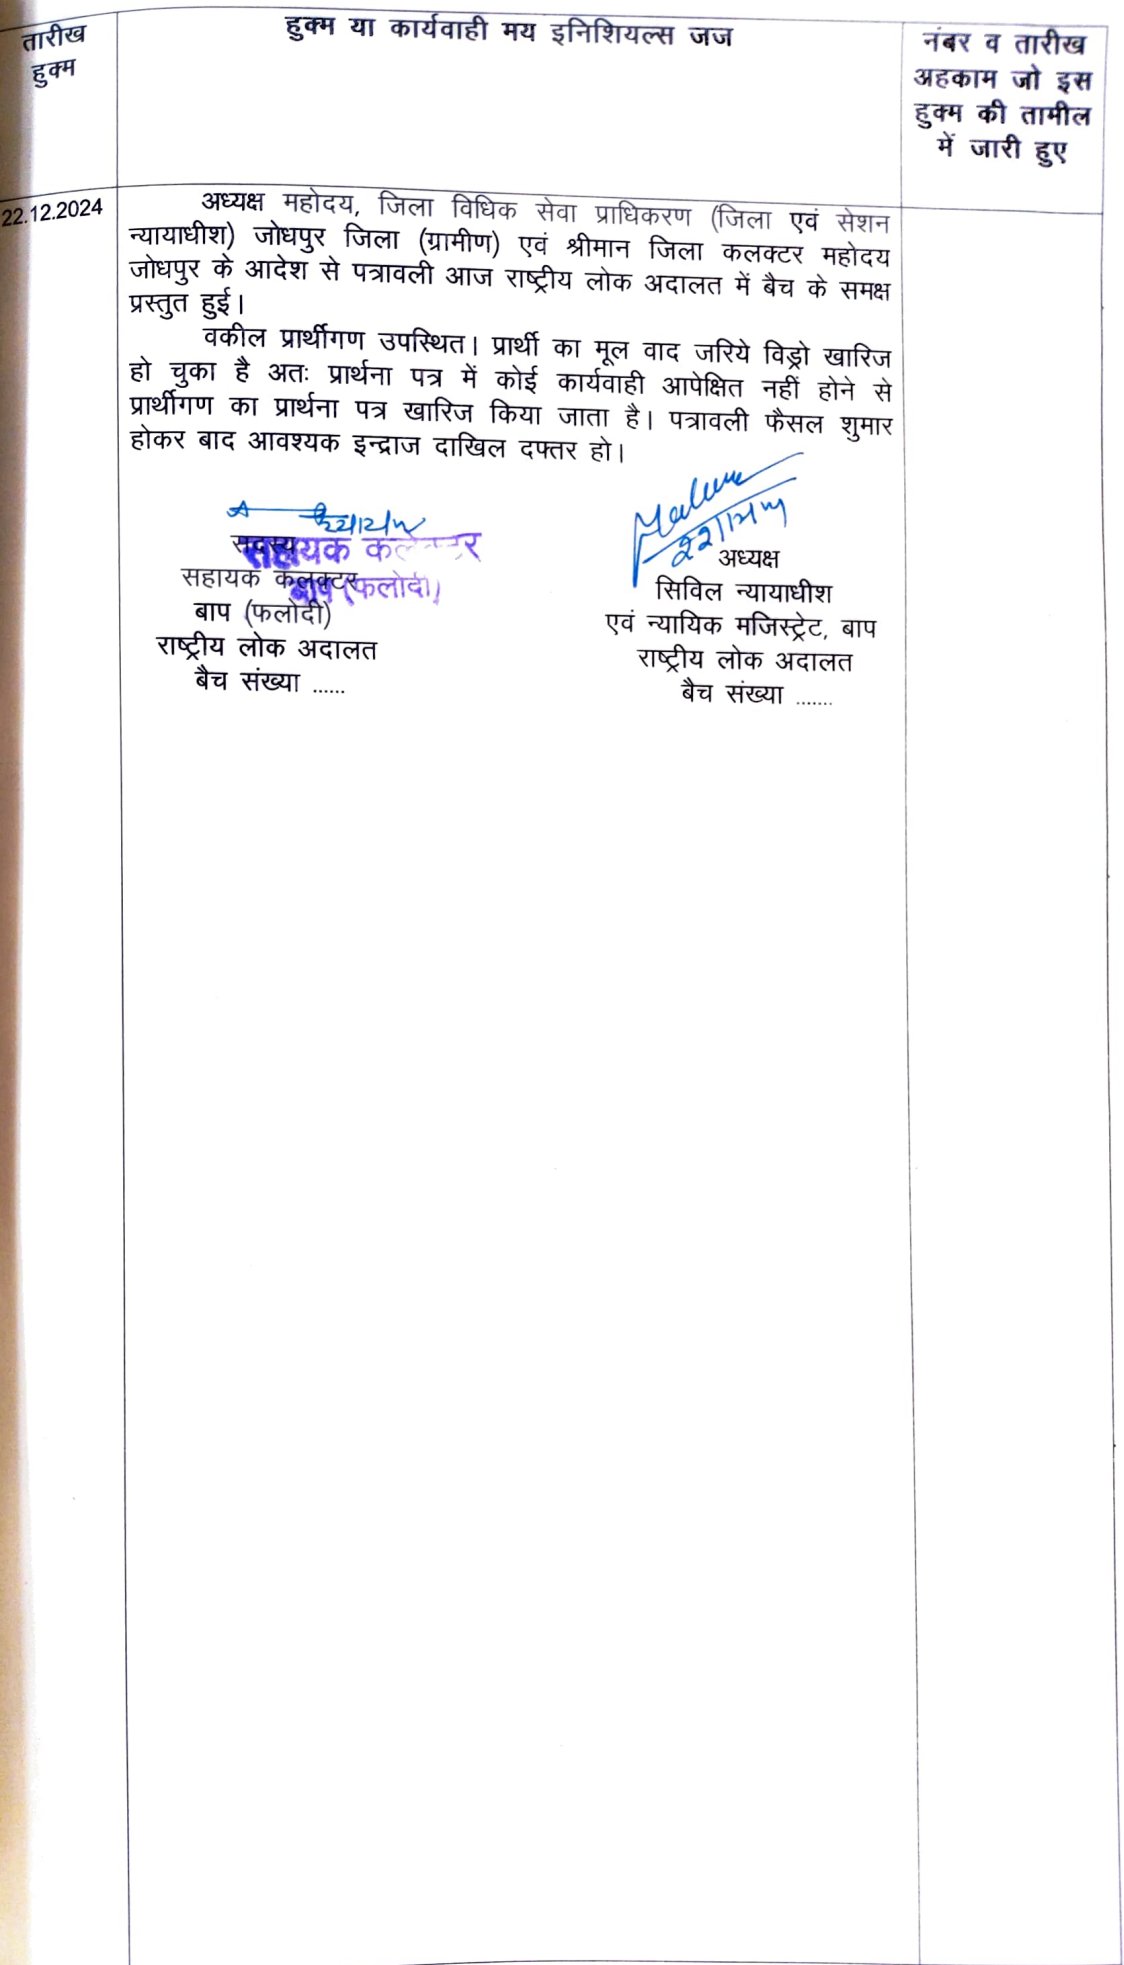 तारीख
हुक्म
हुक्म या कार्यवाही मय इनिशियल्स जज
नंबर व तारीख
अहकाम जो इस
हुक्म की तामील
में जारी हुए
22.12.2024
अध्यक्ष महोदय, जिला विधिक सेवा प्राधिकरण (जिला एवं सेशन
न्यायाधीश) जोधपुर जिला (ग्रामीण) एवं श्रीमान जिला कलक्टर महोदय
जोधपुर के आदेश से पत्रावली आज राष्ट्रीय लोक अदालत में बैच के समक्ष
प्रस्तुत हुई।
वकील प्रार्थीगण उपस्थित। प्रार्थी का मूल वाद जरिये विड्रो खारिज
हो चुका है अतः प्रार्थना पत्र में कोई कार्यवाही आपेक्षित नहीं होने से
प्रार्थीगण का प्रार्थना पत्र खारिज किया जाता है। पत्रावली फैसल शुमार
होकर बाद आवश्यक इन्द्राज दाखिल दफ्तर हो।
सदस्य
सहायक कलक्टर
बाप (फलोदी)
सहायक कलक्टर
बाप (फलोदी)
राष्ट्रीय लोक अदालत
बैच संख्या ......
अध्यक्ष
सिविल न्यायाधीश
एवं न्यायिक मजिस्ट्रेट, बाप
राष्ट्रीय लोक अदालत
बैच संख्या .......